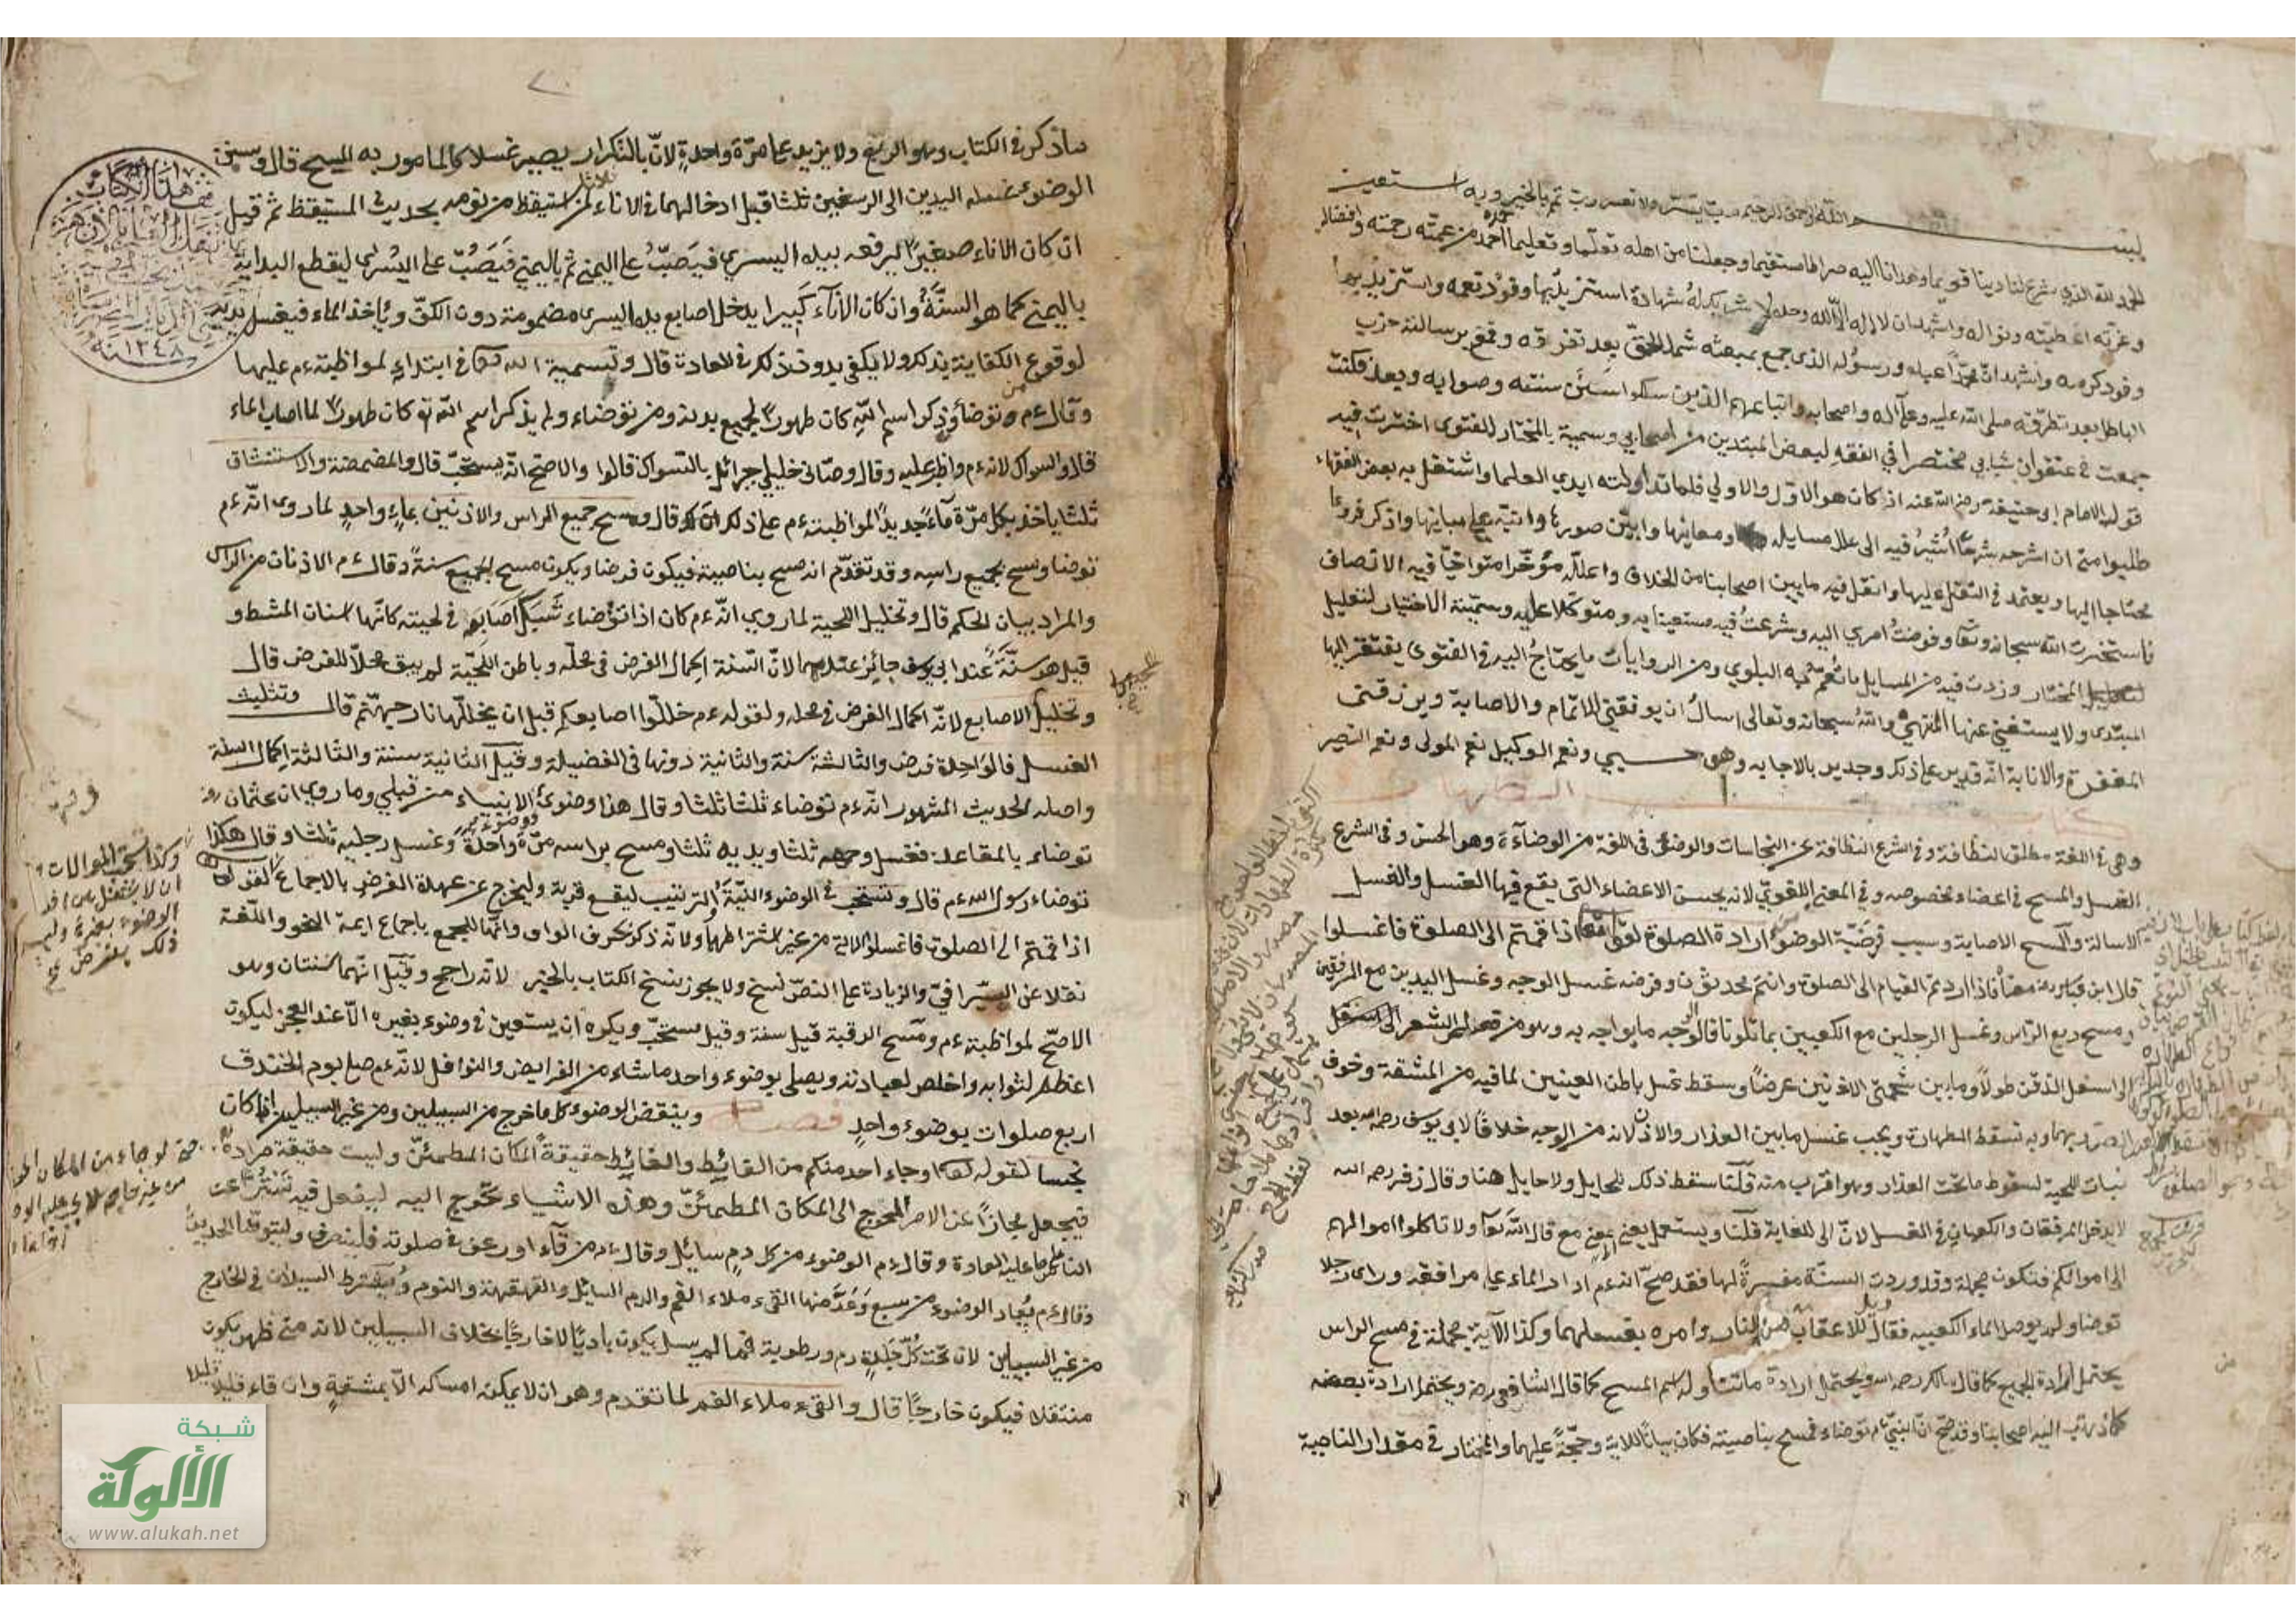 بسم الله الرحمن الرحيم رب يسر ولا تعسر رب تمم بالخير وبه استعين
الحمد لله الذي شرع لنا دينا قويما وهدانا اليه صراطا مستقيما وجعلنا من اهله تعلما وتعليما احمده من عمته رحمته وافضاله
وعزته اعطيته ونواله واشهد ان لا اله الا الله وحده لا شريك له شهادة استنزيد بها وفود نعمه واستزيد بها
وفود كرمه واشهد ان محمدا عبده ورسوله الذي جمع بمبعثه شمل الحق بعد تفرقه وقمع برسالته حزب
الباطل بعد تطرقه صلى الله عليه وعلى آله واصحابه واتباعهم الذين سلكوا سنن سنته وصوابه وبعد فكنت
جمعت في عنفوان شبابي مختصرا في الفقه لبعض المبتدين من اصحابي وسميته بالمختار للفتوى اخترت فيه
قول الامام ابي حنيفة رضي الله عنه اذ كان هو الاول والاولي فلما تداولته ايدي العلما واشتغل به بعض الفقهاء
طلبوا مني ان اشرحه شرحا اشير فيه الى علل مسايله ومعانيها وابين صورها وانبه على مبانيها واذكر فروعا
محتاجا اليها ويعتمد في النقل عليها وانقل فيه ما بين اصحابنا من الخلاف واعلله متوخيا فيه الانصاف
فاستخرت الله سبحانه وتعا وفوضت امري اليه وشرعت فيه مستعينا به ومتوكلا عليه وسميته الاختيار لتعليل
المختار وزدت فيه من المسايل ما تعم به البلوي ومن الروايات ما يحتاج اليه في الفتوى يفتقر اليها
المبتدى ولا يستغني عنها المنتهي والله سبحانه وتعالى اسال ان يوفقني للاتمام والاصابة ويرزقني
المغفرة والانابة انه قدير على ذلك وجدير بالاجابه وهو حسبي ونعم الوكيل نعم المولى ونعم النصير
كتاب الطهارة
وهي في اللغة مطلق النظافة وفي الشرع النظافة عن النجاسات والوضوء في اللغة من الوضاءة وهو الحسن وفي الشرع
الغسل والمسح في اعضاء مخصوصه وفي المعنى اللغوي لانه يحسن الاعضاء التي يقع فيها الغسل والغسل
الاسالة والمسح الاصابة وسبب فرضية الوضوء ارادة الصلوة لقوله تعا اذا قمتم الى الصلوة فاغسلوا
قال ابن عباس معناه اذا اردتم القيام الى الصلوة وانتم محدثون وفرضه غسل الوجه وغسل اليدين مع المرفقين
ومسح ربع الراس وغسل الرجلين مع الكعبين بما تلونا فالوجه ما يواجه به وهو من قصاص الشعر
الى اسفل الذقن طولا وما بين شحمتي الاذنين عرضا وسقط غسل باطن العينين لما فيه من المشقة وخوف
الضرر بهما وبه تسقط الطهارة ويجب غسل ما بين العذار والاذن لانه من الوجه خلافا لابي يوسف رحمه الله بعد
نبات اللحية لسقوط ما تحت العذار وهو اقرب منه قلنا سقط ذلك للحايل ولا حايل هنا وقال زفر رحمه الله
لا يدخل المرفقان والكعبان في الغسل لان الى للغاية قلنا ويستعمل بمعنى مع قال الله تعا ولا تاكلوا اموالهم
الى اموالكم فتكون مجملة وقد وردت السنة مفسرة لها فقد صح انه عم ادار الماء على مرافقه وراى رجلا
توضا ولم يوصل الماء الى كعبيه فقال ويل للاعقاب من النار وامره بغسلهما وكذا الآية مجملة في مسح الراس
يحتمل ارادة الجميع كما قال مالك رحمه الله ويحتمل ارادة ما تناوله اسم المسح كما قال الشافعي رض ويحتمل ارادة بعضه
كما ذهب اليه اصحابنا وقد صح ان النبي عم توضاء فمسح بناصيته فكان بيانا للاية وحجة عليهما والمختار في مقدار الناصية
ما ذكر في الكتاب وهو الربع ولا يزيد على مرة واحدة لان بالتكرار يصير غسلا والمامور به المسح قال وسنن
الوضوء غسل اليدين الى الرسغين ثلثا قبل ادخالهما في الاناء لمن استيقظ من نومه بحديث المستيقظ ثم قيل
ان كان الاناء صغيرا يرفعه بيده اليسري فيصب على اليمنى ثم باليمنى فيصب على اليسرى ليقطع البداية
باليمنى كما هو السنة وان كان الاناء كبيرا يدخل اصابع يده اليسرى مضمومة دون الكف وياخذ الماء فيغسل يديه
لوقوع الكفاية بذلك ولا يكفي بدون ذلك في العادة قال وتسمية الله تعا في ابتدايه لمواظبته عم عليها
وقال عم من توضا وذكر اسم الله كان طهورا لجميع بدنه ومن توضاء ولم يذكر اسم الله تع كان طهورا لما اصابه الماء
قال والسواك لانه عم واظب عليه وقال وصاني خليلي جبرائل بالسواك قالوا والاصح انه يستحب قال والمضمضة والاستنشاق
ثلثا ياخذ بكل مرة ماء جديدا لمواظبته عم على ذلك قال ومسح جميع الراس والاذنين بماء واحد لما روى انه عم
توضا ومسح بجميع راسه وقد تقدم انه مسح بناصيته فيكون فرضا ويكون مسح الجميع سنة وقال عم الاذنان من الراس
والمراد بيان الحكم قال وتخليل اللحية لما روي انه عم كان اذا توضاء شبك اصابعه في لحيته كانها اسنان المشط و
قيل هو سنة عند ابي يوسف جائز عندهما لان السنة اكمال الفرض في محله وباطن اللحية لم يبق محلا للفرض قال
وتخليل الاصابع لانه اكمال الفرض في محله ولقوله عم خللوا اصابعكم قبل ان يخللها نار جهنم قال وتثليث
الغسل فالواحدة فرض والثالثة سنة والثانية دونها في الفضيلة وقيل الثانية سنة والثالثة اكمال السنة
واصله الحديث المشهور انه عم توضاء ثلثا ثلثا وقال هذا وضوئي ووضوء الانبياء من قبلي وما روي ان عثمان رض
توضاء بالمقاعد فغسل وجهه ثلثا ويديه ثلثا ومسح براسه مرة واحدة وغسل رجليه ثلثا وقال هكذا
توضاء رسول الله عم قال وتستحب في الوضوء النية والترتيب ليقع قربة وليخرج عن عهدة الفرض بالاجماع
اذا قمتم الى الصلوة فاغسلوا الاية من غير اشتراطهما ولانه ذكر بحرف الواو وانها للجمع باجماع ايمة النحو واللغة
نقلا عن السيرافي والزيادة على النص نسخ ولا يجوز نسخ الكتاب بالخبر لانه راجح وقيل انهما سنتان وهو
الاصح لمواظبته عم ومسح الرقبة قيل سنة وقيل مستحب ويكره ان يستعين في وضوء بغيره الا عند العجز ليكون
اعظم لثوابه واخلص لعبادته ويصلي بوضوء واحد ما شاء من الفرايض والنوافل لانه عم صلى يوم الخندق
اربع صلوات بوضوء واحد فصل وينقض الوضوء كل ما خرج من السبيلين ومن غير السبيلين ان كان
نجسا لقوله تعا او جاء احد منكم من الغائط والغائط حقيقة المكان المطمئن وليست حقيقة مرادة
فيجعل مجازا عن الامر المحوج الى المكان المطمئن وهذه الاشياء تحوج اليه ليفعل فيه تسترا عن
الناس على ما عليه العادة وقال عم الوضوء من كل دم سائل وقال عم من قآء او رعف في صلوته فلينصرف وليتوضا الحديث
وقال عم يعاد الوضوء من سبع وعد منها القيء ملاء الفم والدم السائل والقهقهة والنوم ويشترط السيلان في الخارج
من غير السبيلين لان تحت كل جلدة دم ورطوبة فما لم يسل يكون باديا لا خارجا بخلاف السبيلين لانه متى ظهر يكون
منتقلا فيكون خارجا قال والقيء ملاء الفم لما تقدم وهو ان لا يمكن امساكه الا بمشقة وان قاء قليلا قليلا
وقف هذا الكتاب
سنة ١٢٤٨
شبكة
الألوكة
www.alukah.net